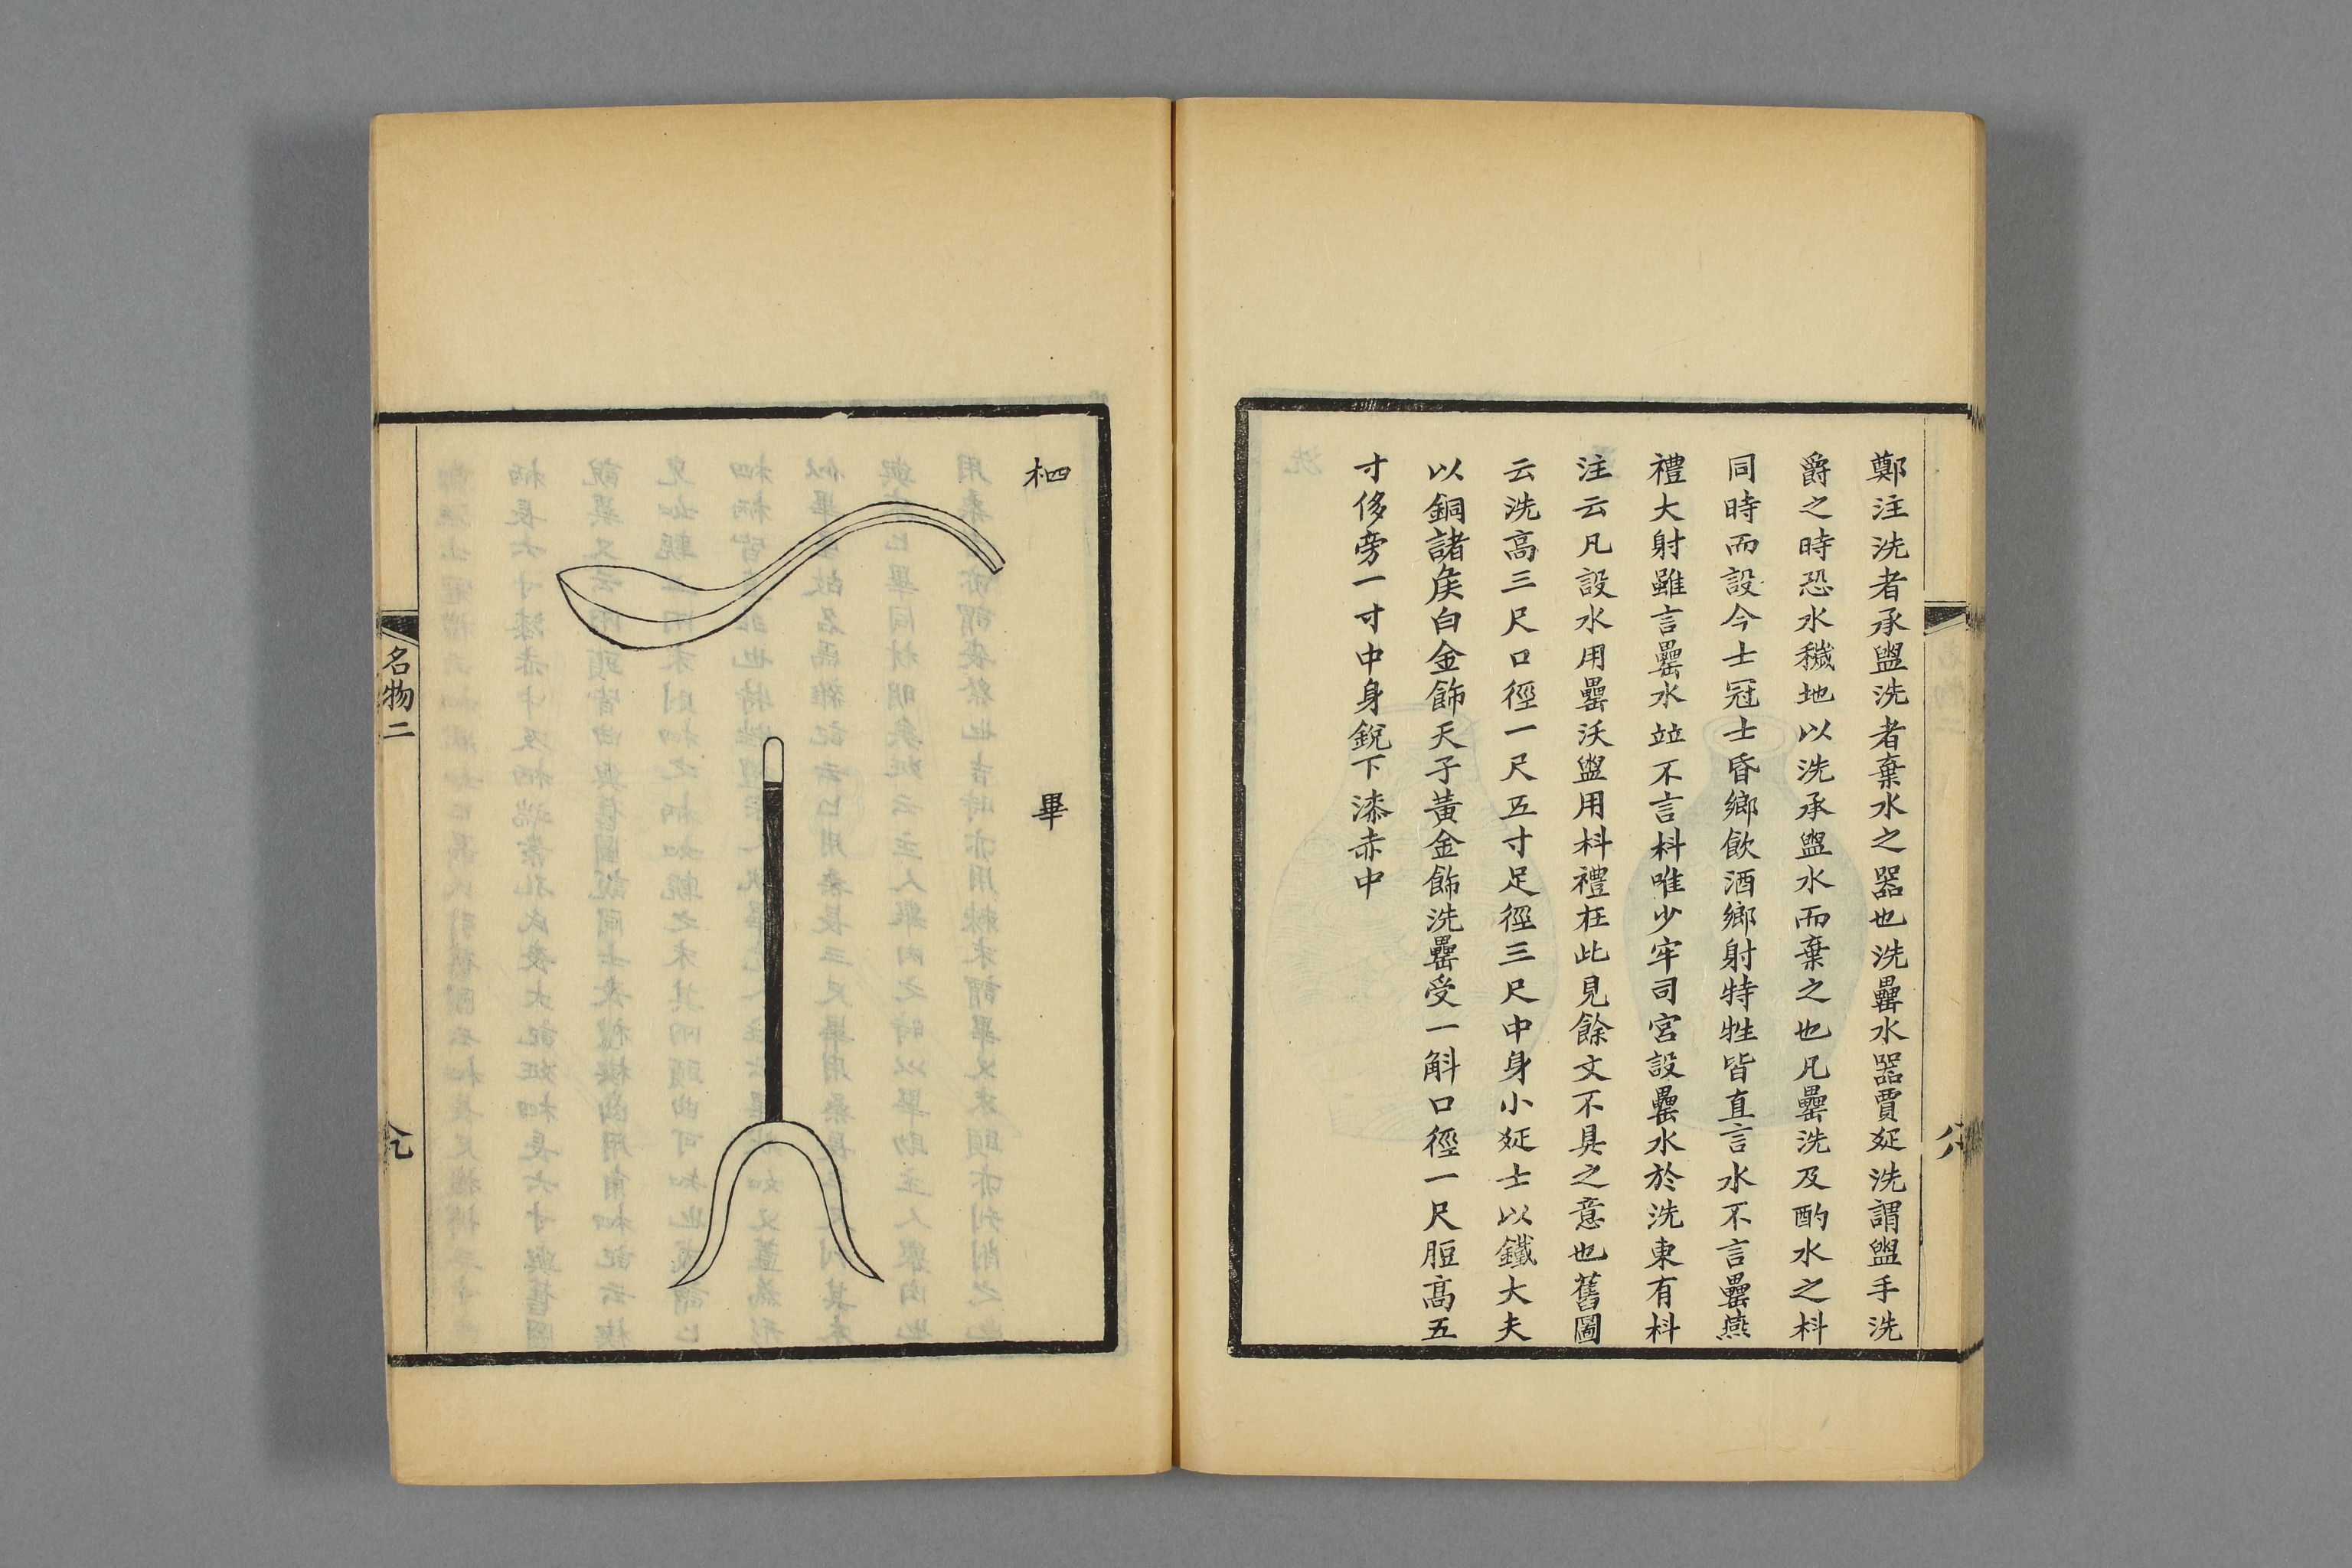 鄭注洗者承盥洗者棄水之器也洗罍水器賈疏洗謂盥手洗
爵之時恐水穢地以洗承盥水而棄之也凡罍洗及酌水之枓
同時而設今士冠士昏鄉飲酒鄉射特牲皆直言水不言罍燕
禮大射雖言罍水竝不言枓唯少牢司宮設罍水於洗東有枓
注云凡設水用罍沃盥用枓禮在此見餘文不具之意也舊圖
云洗高三尺口徑一尺五寸足徑三尺中身小疏士以鐵大夫
以銅諸矦白金飾天子黃金飾洗罍受一斛口徑一尺脰高五
寸侈旁一寸中身銳下漆赤中
八
柶
畢
名物二
九